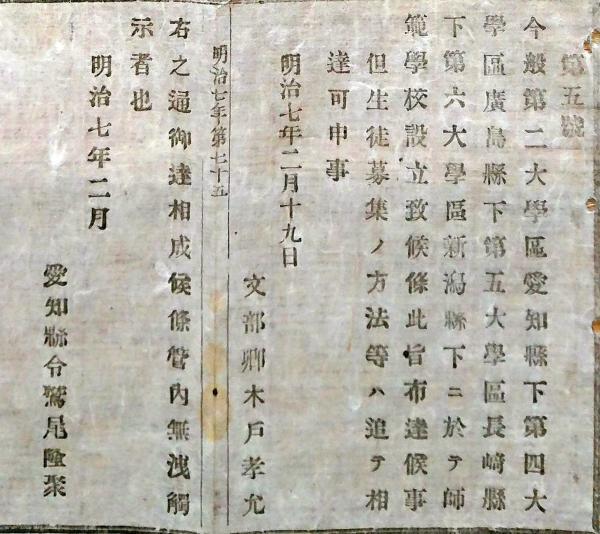 第五號
今般第二大學區愛知縣下第四大
學區廣島縣下第五大學區長崎縣
下第六大學區新潟縣下ニ於テ師
範學校設立致候條此旨布達候事
但生徒募集ノ方法等ハ追テ相
達可申事
明治七年二月十九日
文部卿木戶孝允
明治七年第七十五
右之通御達相成候條管內無洩觸
示者也
明治七年二月
愛知縣令鷲尾隆聚